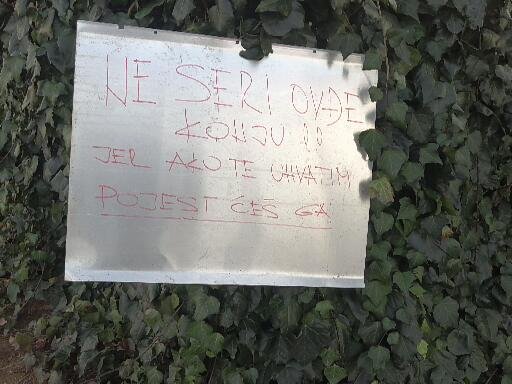 NE SERI OVDE
KONJU !!
JER AKO TE UHVATIM
POJEST ĆEŠ GA